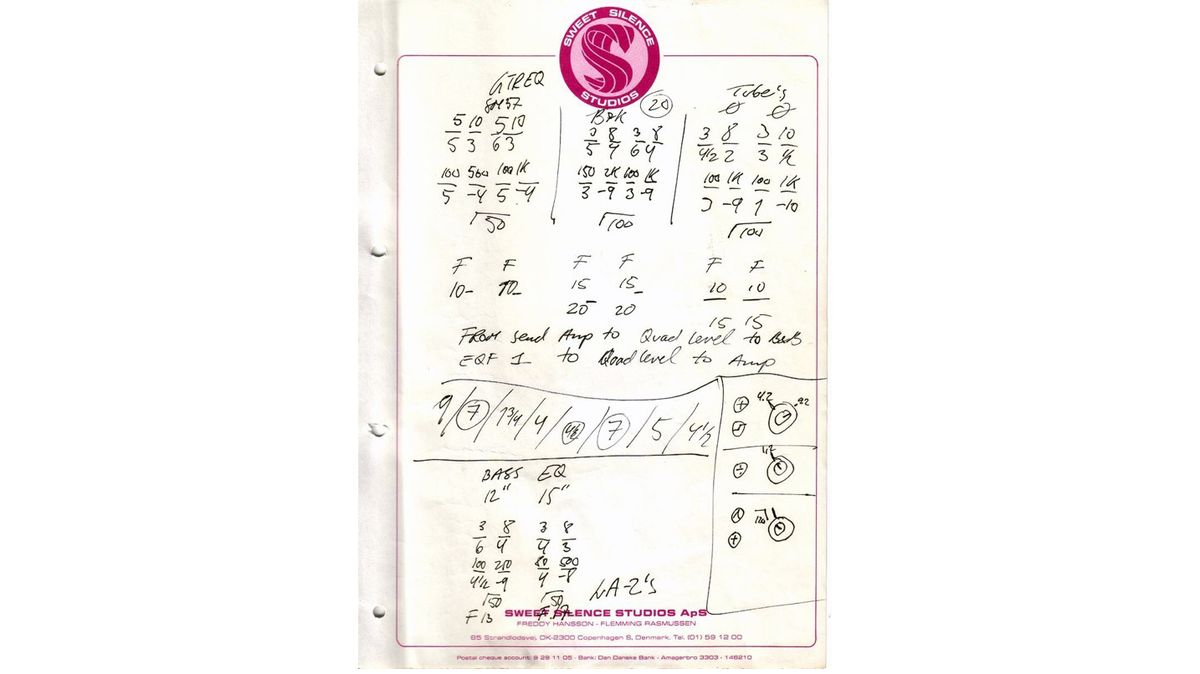 SWEET SILENCE
STUDIOS
GTREQ
SM57
5 10 5 10
5 3 6 3
100 500 100 1K
5 -4 5 -4
50
B&K
20
3 8 3 8
5 4 6 4
150 2K 100 1K
3 -9 3 -9
100
Tube's
Ø Ø
3 8 3 10
4½ 2 3 ½
100 1K 100 1K
3 -9 1 -10
100
F F F F F F
10- 10- 15 15- 10 10
20 20 15 15
FROM send Amp to Quad level to
EQF 1 to Quad level to Amp
9/7/1 3/4/4/4½/7/5/4½
4.2
BASS EQ
12" 15"
3 8 3 8
6 4 4 3
100 210 80 500
4½ -9 4 -8
50 50
F 13
LA-2's
SWEET SILENCE STUDIOS ApS
FREDDY HANSSON - FLEMMING RASMUSSEN
85 Strandlodsvej, DK-2300 Copenhagen S, Denmark. Tel. (01) 59 12 00
Postal cheque account: 9 29 11 05 - Bank: Den Danske Bank - Amagerbro 3303 - 146210